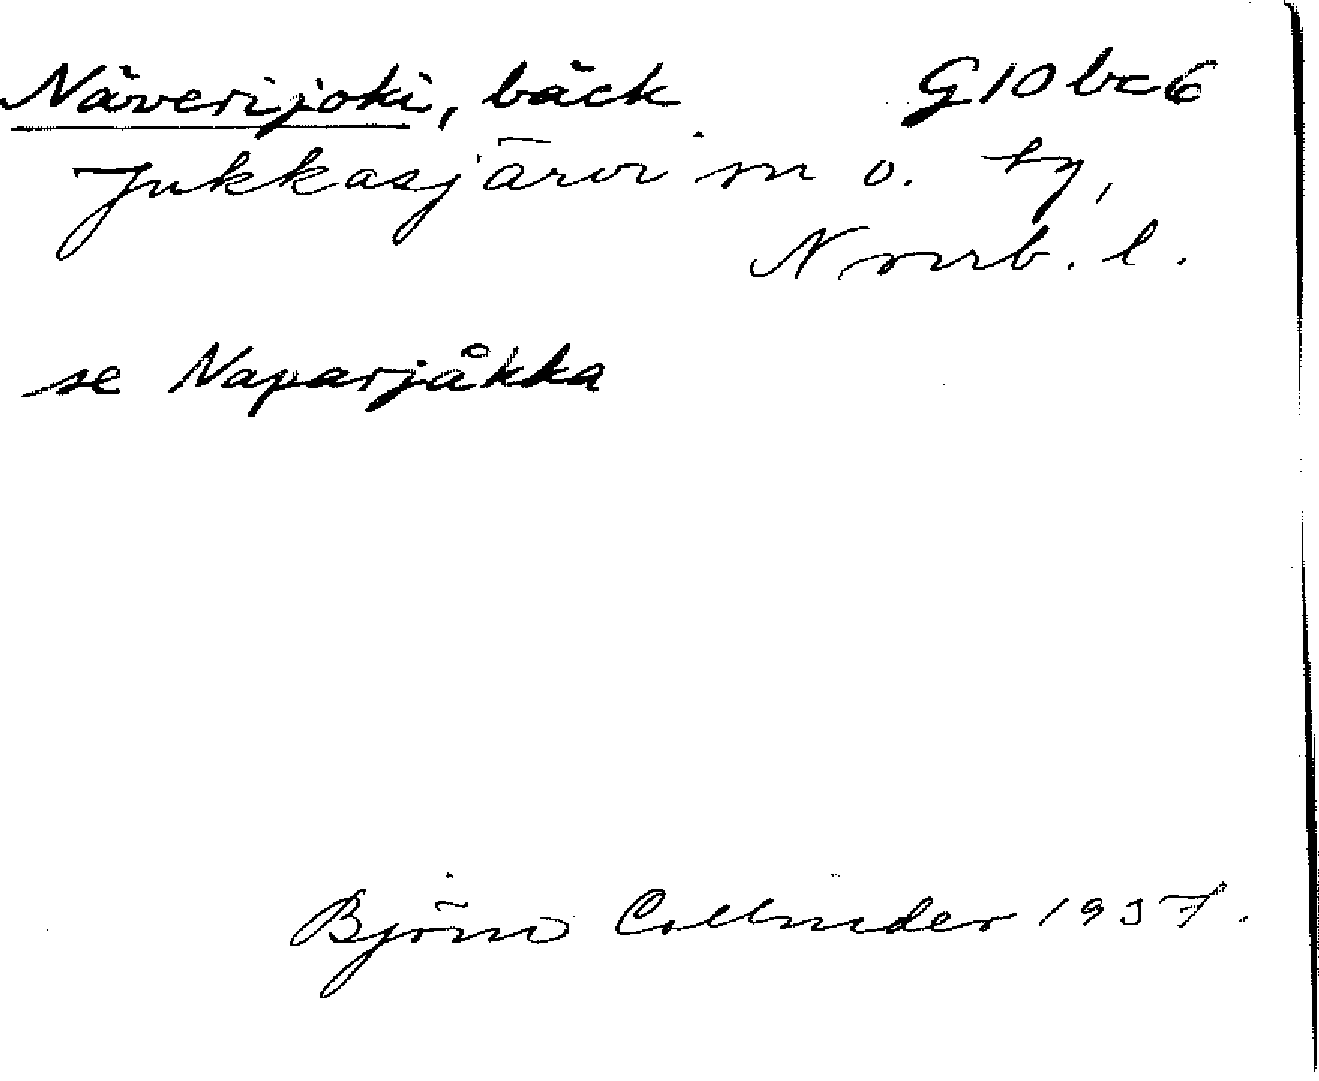 Näverijoki, bäck G10bc6
Jukkasjärvi sn o. tg,
Norrb. l.
se Naparjåkka
Björn Collinder 1937.